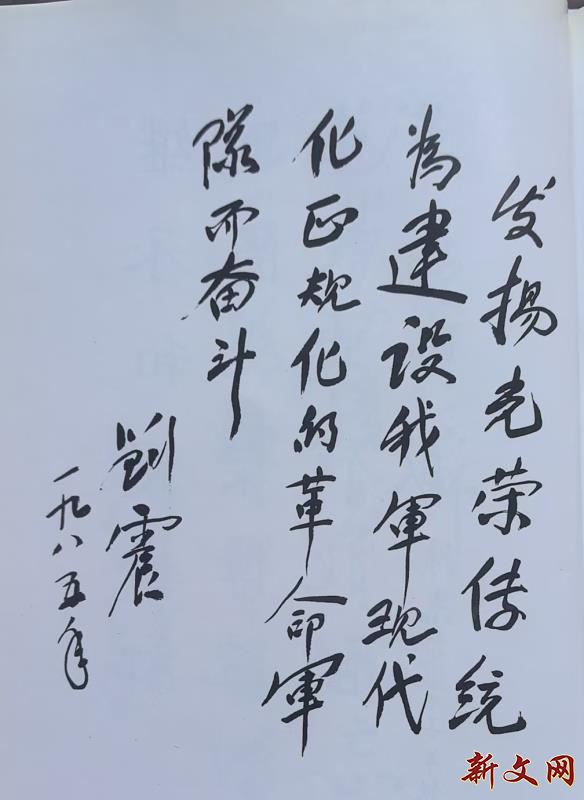 发扬光荣传统
為建设我軍现代
化正规化的革命軍
隊而奋斗
劉震
一九八五年
新文网